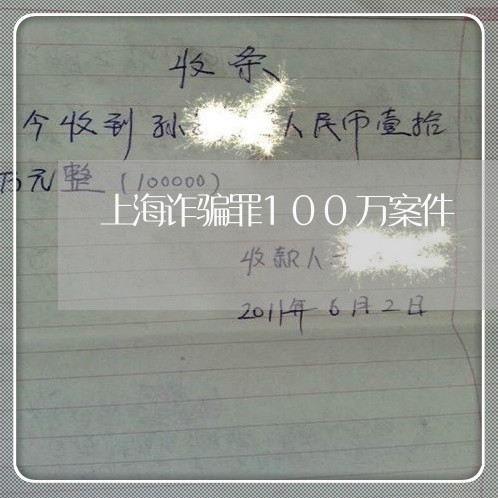 收条
今收到孙 人民币壹拾
万元整(100000)
上海诈骗罪100万案件
收款人
2011年6月2日